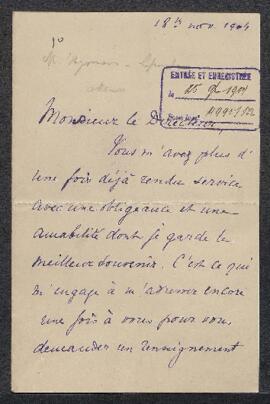 18 nov. 1904
1°
ENTRÉE ET ENREGISTRÉE
le
Monsieur le Directeur,
Vous m'avez plus d'
une fois déjà rendu service
avec une obligeance et une
amabilité dont je garde le
meilleur souvenir. C'est ce qui
m'engage à m'adresser encore
une fois à vous pour vous
demander un renseignement